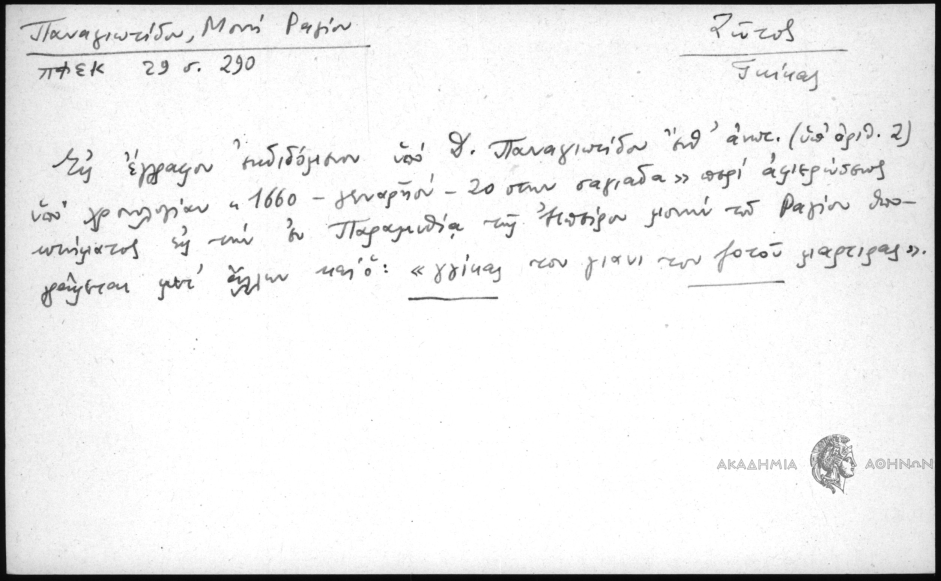 Παναγιωτίδου, Μονή Ραγίου
Ζῶτος
ΠΦΕΚ 29 σ. 290
Γκίκας
Εἰς ἔγγραφον ἐκδιδόμενον ὑπό Θ. Παναγιωτίδου ἔνθ' ἀνωτ. (ὑπ' ἀριθ. 2)
ὑπό χρονολογίαν « 1660 - γεναρῆου - 20 στην σαγιαδα » περί ἀφιερώσεως
κτήματος εἰς τήν ἐν Παραμυθίᾳ τῆς Ἠπείρου μονήν τοῦ Ραγίου ὑπο-
γράφεται μετ' ἄλλων καί ὁ: « γγίκας του γιανι του ζοτοῦ μαρτιρας ».
ΑΚΑΔΗΜΙΑ ΑΘΗΝΩΝ